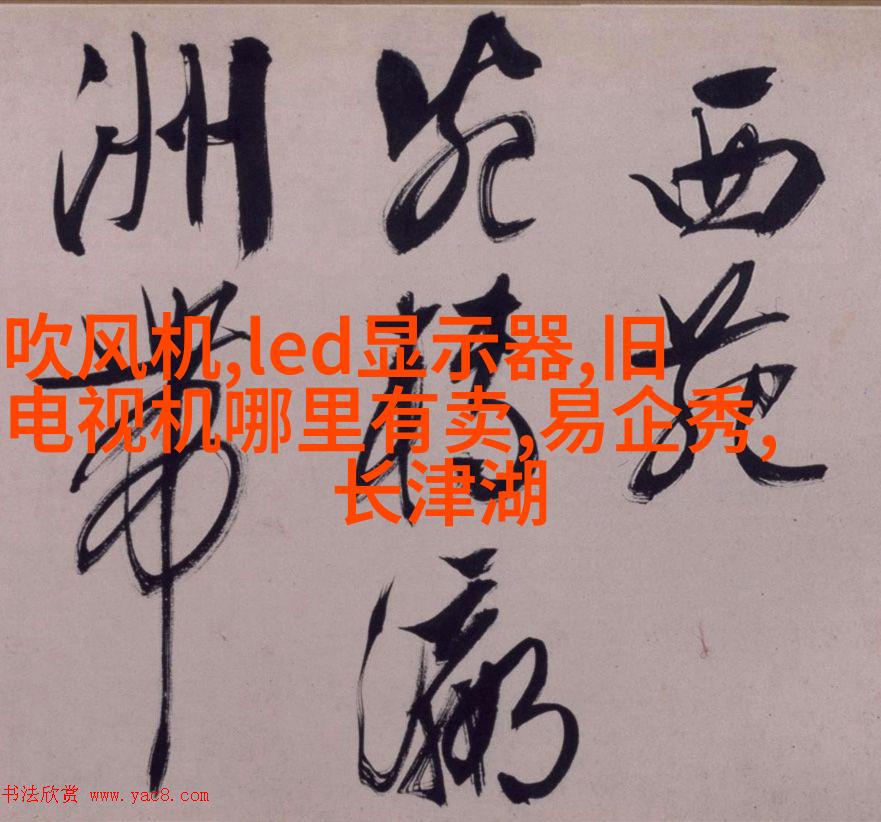 西苑
瀛
洲带
吹风机,led显示器,旧
电视机哪里有卖,易企秀,
长津湖
书法欣赏 www.yac8.com